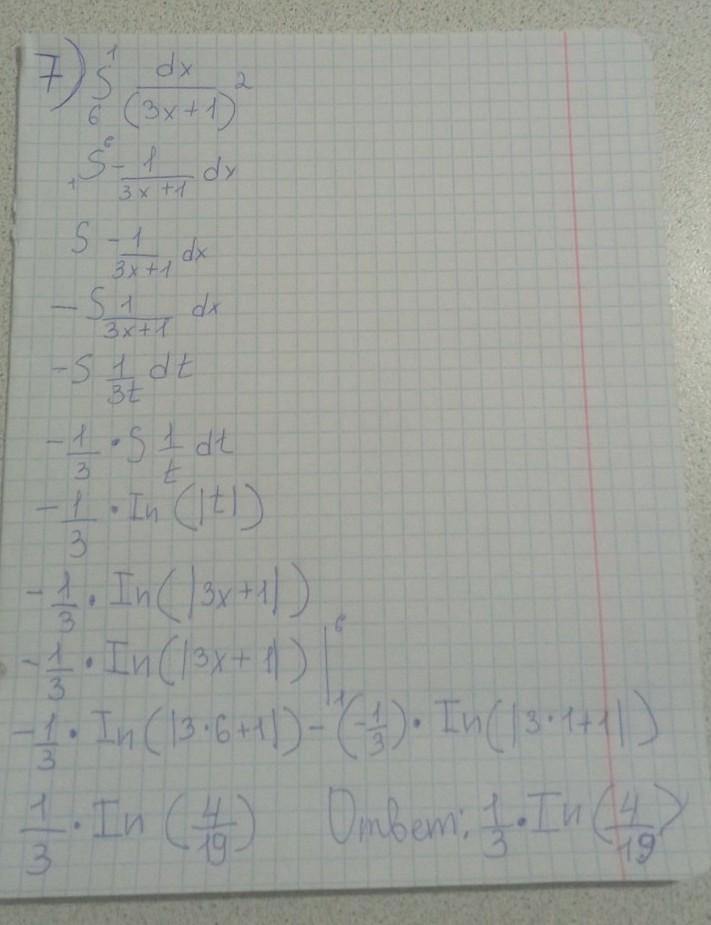 7) ∫₆¹ dx/(3x+1)²
₁∫⁶ -1/(3x+1) dx
∫ -1/(3x+1) dx
-∫ 1/(3x+1) dx
-∫ 1/(3t) dt
-1/3 · ∫ 1/t dt
-1/3 · In (|t|)
-1/3 · In (|3x+1|)
-1/3 · In (|3x+1|) |₁⁶
-1/3 · In (|3·6+1|) - (-1/3) · In (|3·1+1|)
1/3 · In (4/19) Ответ: 1/3 · In (4/19)